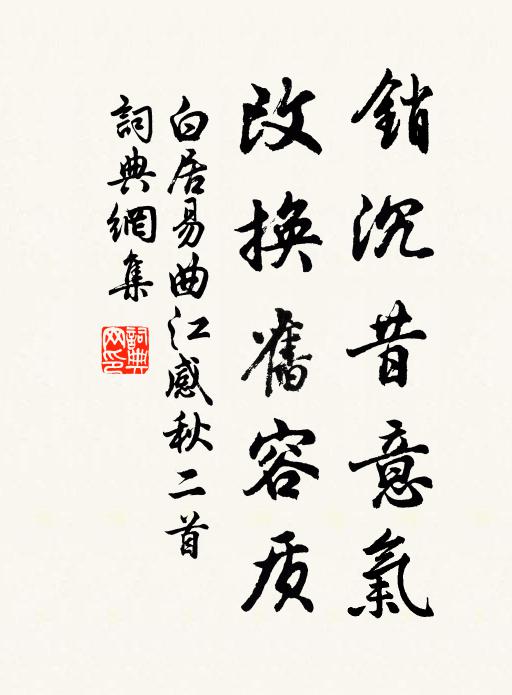 銷沉昔意氣
改換舊容质
白居易曲江感秋二首
詞典網集
詞典网印